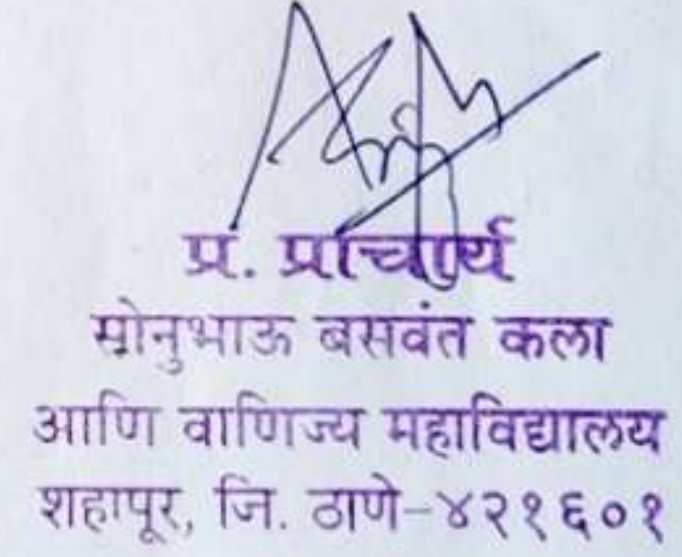 प्र. प्राचार्य
सोनुभाऊ बसवंत कला
आणि वाणिज्य महाविद्यालय
शहापूर, जि. ठाणे-४२१६०१